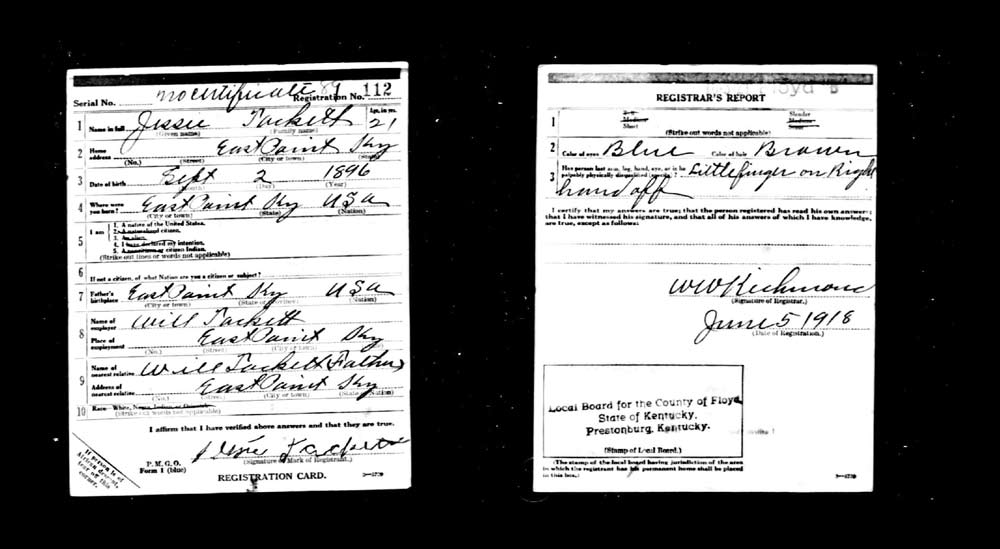 Serial No. no certificate 89 Registration No. 112
1 Name in full Jessie Tackett Age, in yrs. 21
(Given name) (Family name)
2 Home address East Point Ky
(No.) (Street) (City or town) (State)
3 Date of birth Sept 2 1896
(Month) (Day) (Year)
4 Where were you born? East Point Ky USA
(City or town) (State) (Nation)
5 I am 1. A native of the United States.
2. A naturalized citizen.
3. An alien.
4. I have declared my intention.
5. A noncitizen or citizen Indian.
(Strike out lines or words not applicable)
6 If not a citizen, of what Nation are you a citizen or subject?
7 Father's birthplace East Point Ky USA
(City or town) (State or Province) (Nation)
8 Name of employer Will Tackett
Place of employment East Point Ky
(No.) (Street) (City or town)
9 Name of nearest relative Will Tackett (Father)
Address of nearest relative East Point Ky
(No.) (Street) (City or town) (State or Nation)
10 Race—White, Negro, Indian, or Oriental
(Strike out words not applicable)
I affirm that I have verified above answers and that they are true.
Jessie Tackett
(Signature or Mark of Registrant.)
P. M. G. O.
Form 1 (blue)
REGISTRATION CARD.
If person is of
African descent,
tear off this
corner.
REGISTRAR'S REPORT
1 Slender
Medium Medium
Short
(Strike out words not applicable)
2 Color of eyes Blue Color of hair Brown
3 Has person lost arm, leg, hand, eye, or is he palpably physically disqualified (specify)? Little finger on Right
hand off
I certify that my answers are true; that the person registered has read his own answers;
that I have witnessed his signature, and that all of his answers of which I have knowledge,
are true, except as follows:
WW Richmond
(Signature of Registrar.)
June 5 1918
(Date of Registration.)
Local Board for the County of Floyd,
State of Kentucky,
Prestonburg, Kentucky.
(Stamp of Local Board.)
(The stamp of the local board having jurisdiction of the area
in which the registrant has his permanent home shall be placed
in this box.)